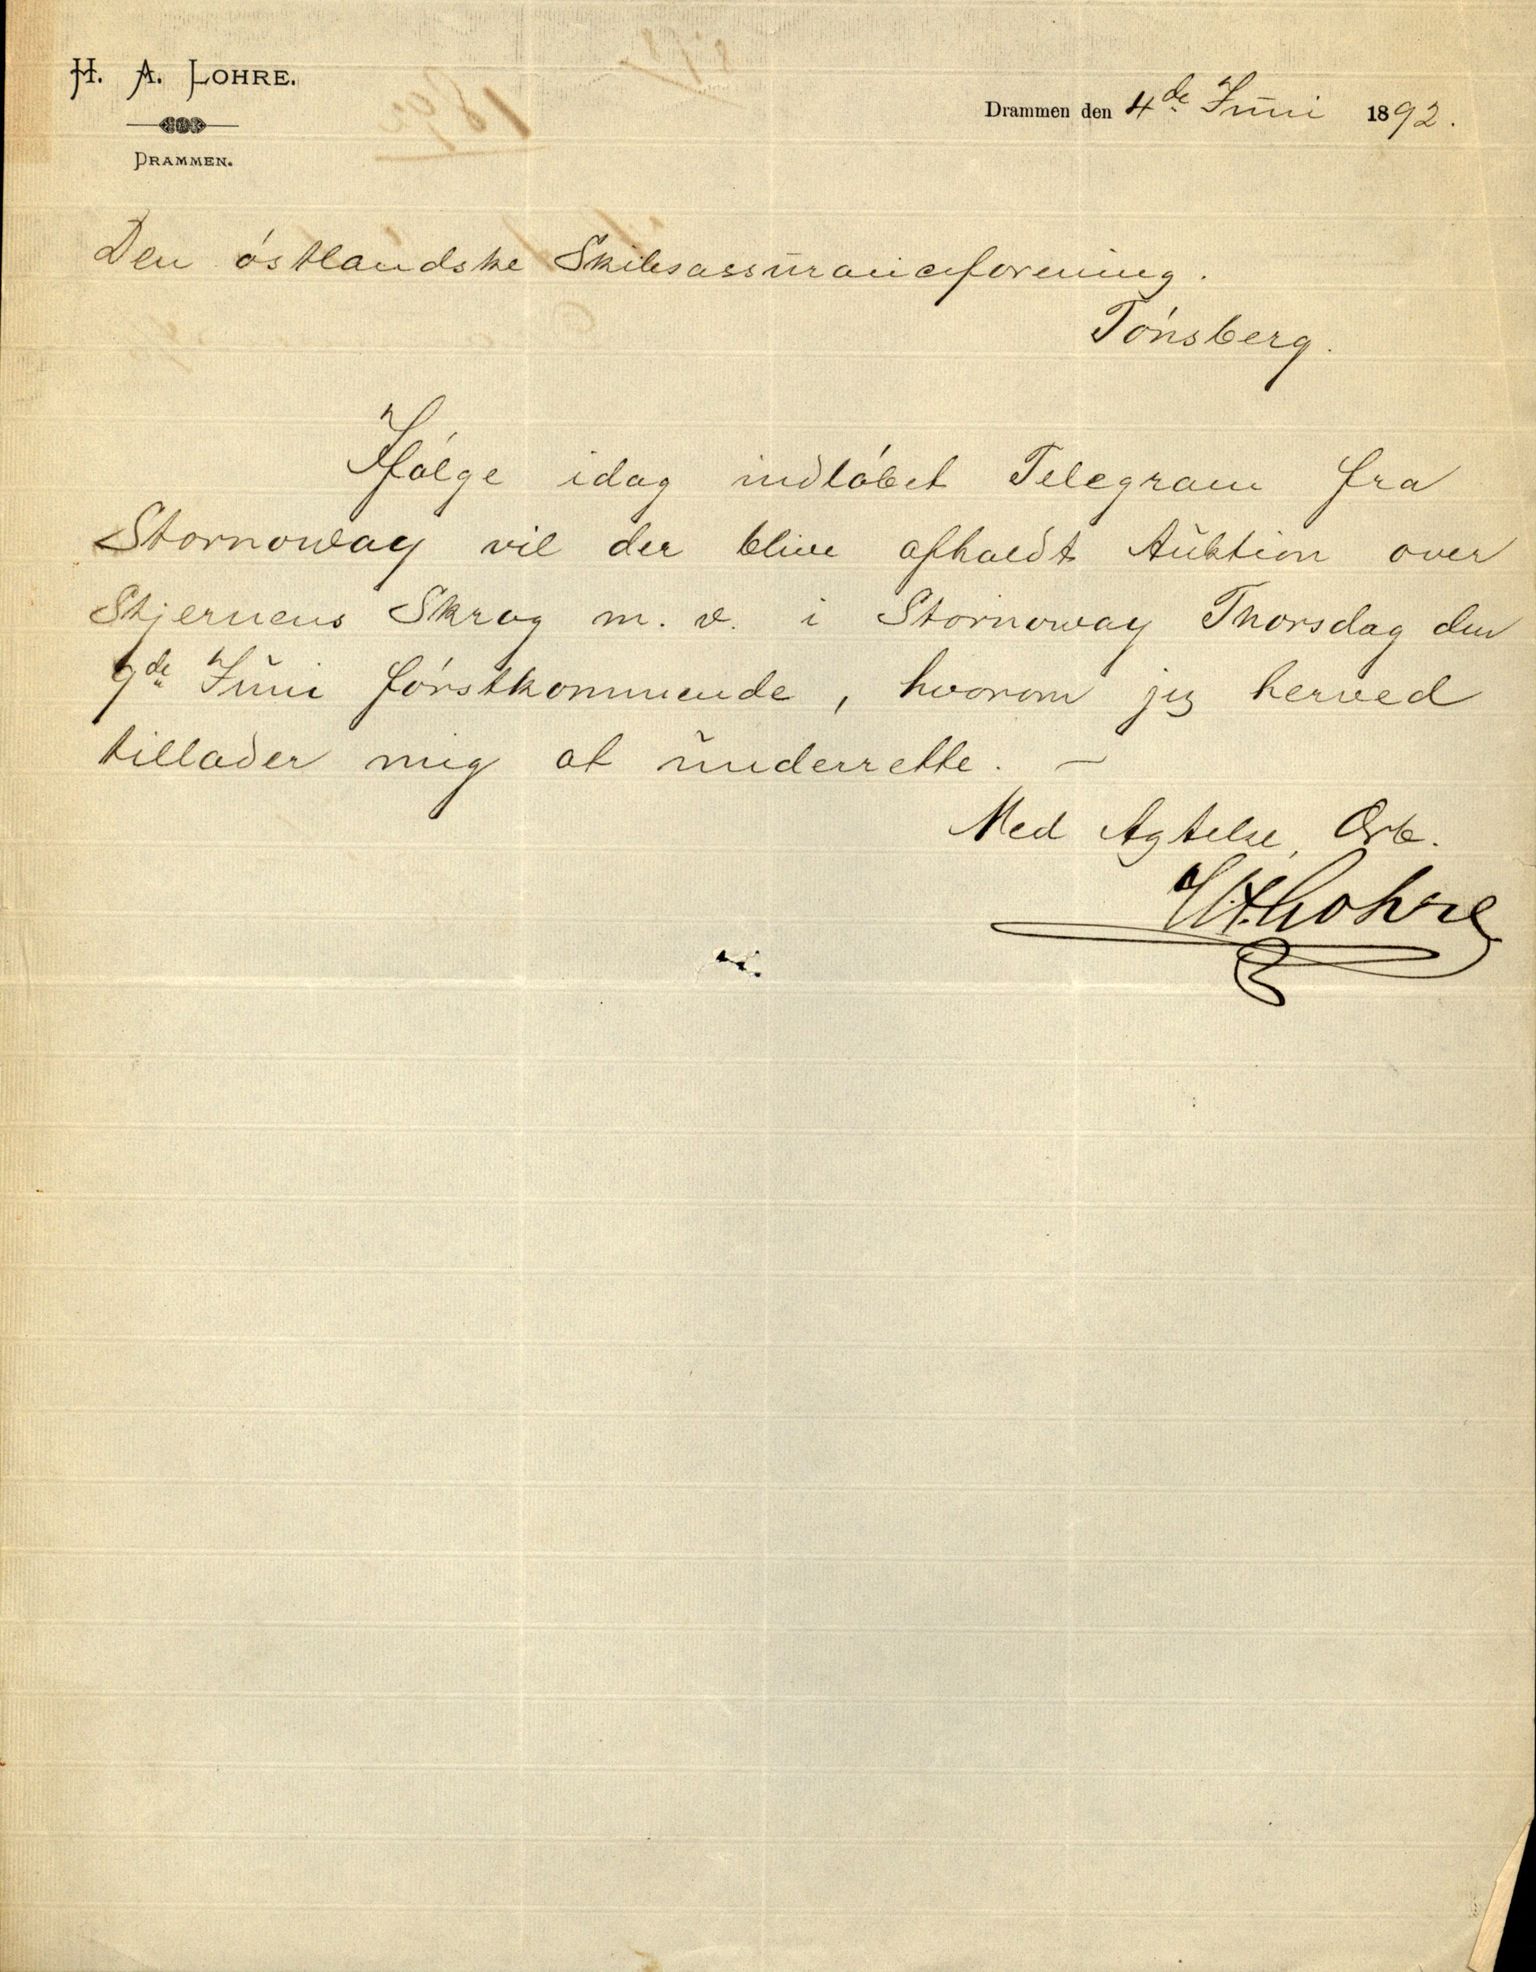 H. A. LOHRE.
DRAMMEN.
Drammen den 4de Juni 1892.
Den østlandske Skibsassuranceforening.
Tønsberg.
Ifølge idag indløbet Telegram fra
Stornoway vil der blive afholdt Auktion over
Stjernens Skrog m. v. i Stornoway Thorsdag den
9de Juni førstkommende, hvorom jeg herved
tillader mig at underrette. —
Med Agtelse, Ærb.
H.A. Lohre